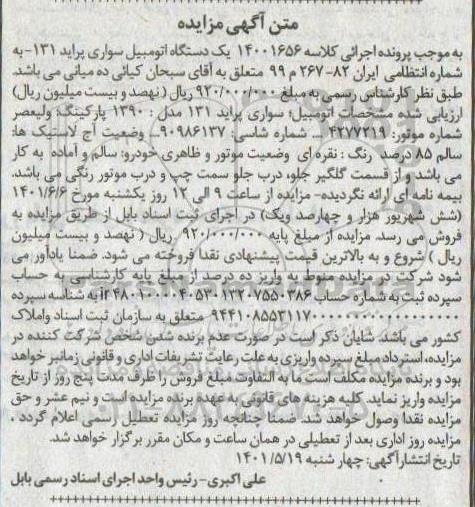 متن آگهی مزایده
به موجب پرونده اجرائی کلاسه ۱۴۰۰۱۶۵۶ یک دستگاه اتومبیل سواری پراید ۱۳۱- به
شماره انتظامی ایران ۸۲- ۲۶۷ م ۹۹ متعلق به آقای سبحان کیائی ده میانی می باشد.
طبق نظر کارشناس رسمی به مبلغ ۹۲۰/۰۰۰/۰۰۰ ریال ( نهصد و بیست میلیون ریال)
ارزیابی شده مشخصات اتومبیل؛ سواری پراید ۱۳۱ مدل : ۱۳۹۰ پارکینگ: ولیعصر
شماره موتور: ۴۲۷۷۲۱۹ – شماره شاسی: ۹۰۹۸۶۱۳۷– وضعیت آج لاستیک ها:
سالم ۸۵ درصد رنگ : نقره ای وضعیت موتور و ظاهری خودرو: سالم و آماده به کار
می باشد و از قسمت گلگیر جلو، درب جلو سمت چپ و درب موتور رنگی می باشد.
بیمه نامه ای ارائه نگردیده- مزایده از ساعت ۹ الی ۱۲ روز یکشنبه مورخ ۱۴۰۱/۶/۶
(شش شهریور هزار و چهارصد ویک) در اجرای ثبت اسناد بابل از طریق مزایده به
فروش می رسد. مزایده از مبلغ پایه ۹۲۰/۰۰۰/۰۰۰ ریال ( نهصد و بیست میلیون
ریال ) شروع و به بالاترین قیمت پیشنهادی نقدا فروخته می شود. ضمنا یادآور می
شود شرکت در مزایده منوط به واریز ده درصد از مبلغ پایه کارشناسی به حساب
سپرده ثبت به شماره حساب به شناسه سپرده
متعلق به سازمان ثبت اسناد واملاک
کشور می باشد. شایان ذکر است در صورت عدم برنده شدن شخص شرکت کننده در
مزایده، استرداد مبلغ سپرده واریزی به علت رعایت تشریفات اداری و قانونی زمانبر خواهد
بود و برنده مزایده مکلف است ما به التفاوت مبلغ فروش را ظرف مدت پنج روز از تاریخ
مزایده واریز نماید. کلیه هزینه های قانونی به عهده برنده مزایده است و نیم عشر و حق
مزایده نقدا وصول خواهد شد. ضمنا چنانچه روز مزایده تعطیل رسمی اعلام گردد ،
مزایده روز اداری بعد از تعطیلی در همان ساعت و مکان مقرر برگزار خواهد شد.
تاریخ انتشارآگهی: چهار شنبه ۱۴۰۱/۵/۱۹
علی اکبری- رئیس واحد اجرای اسناد رسمی بابل